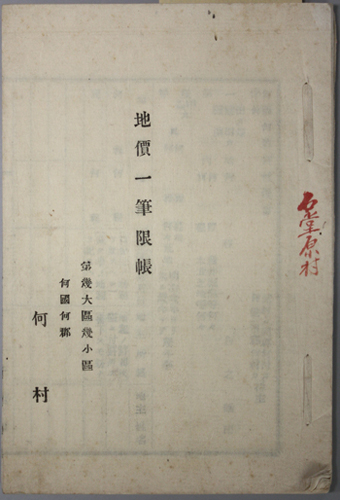 石堂原村
地價一筆限帳
第幾大區幾小區
何國何郡
何村